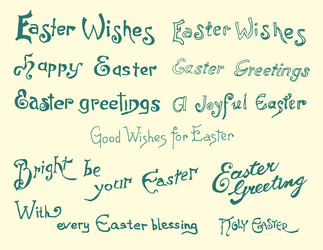 Easter Wishes
Easter Wishes
happy Easter
Easter Greetings
Easter greetings
A Joyful Easter
Good Wishes for Easter
Bright be
your Easter
Easter
Greeting
With
every Easter blessing
Holy Easter